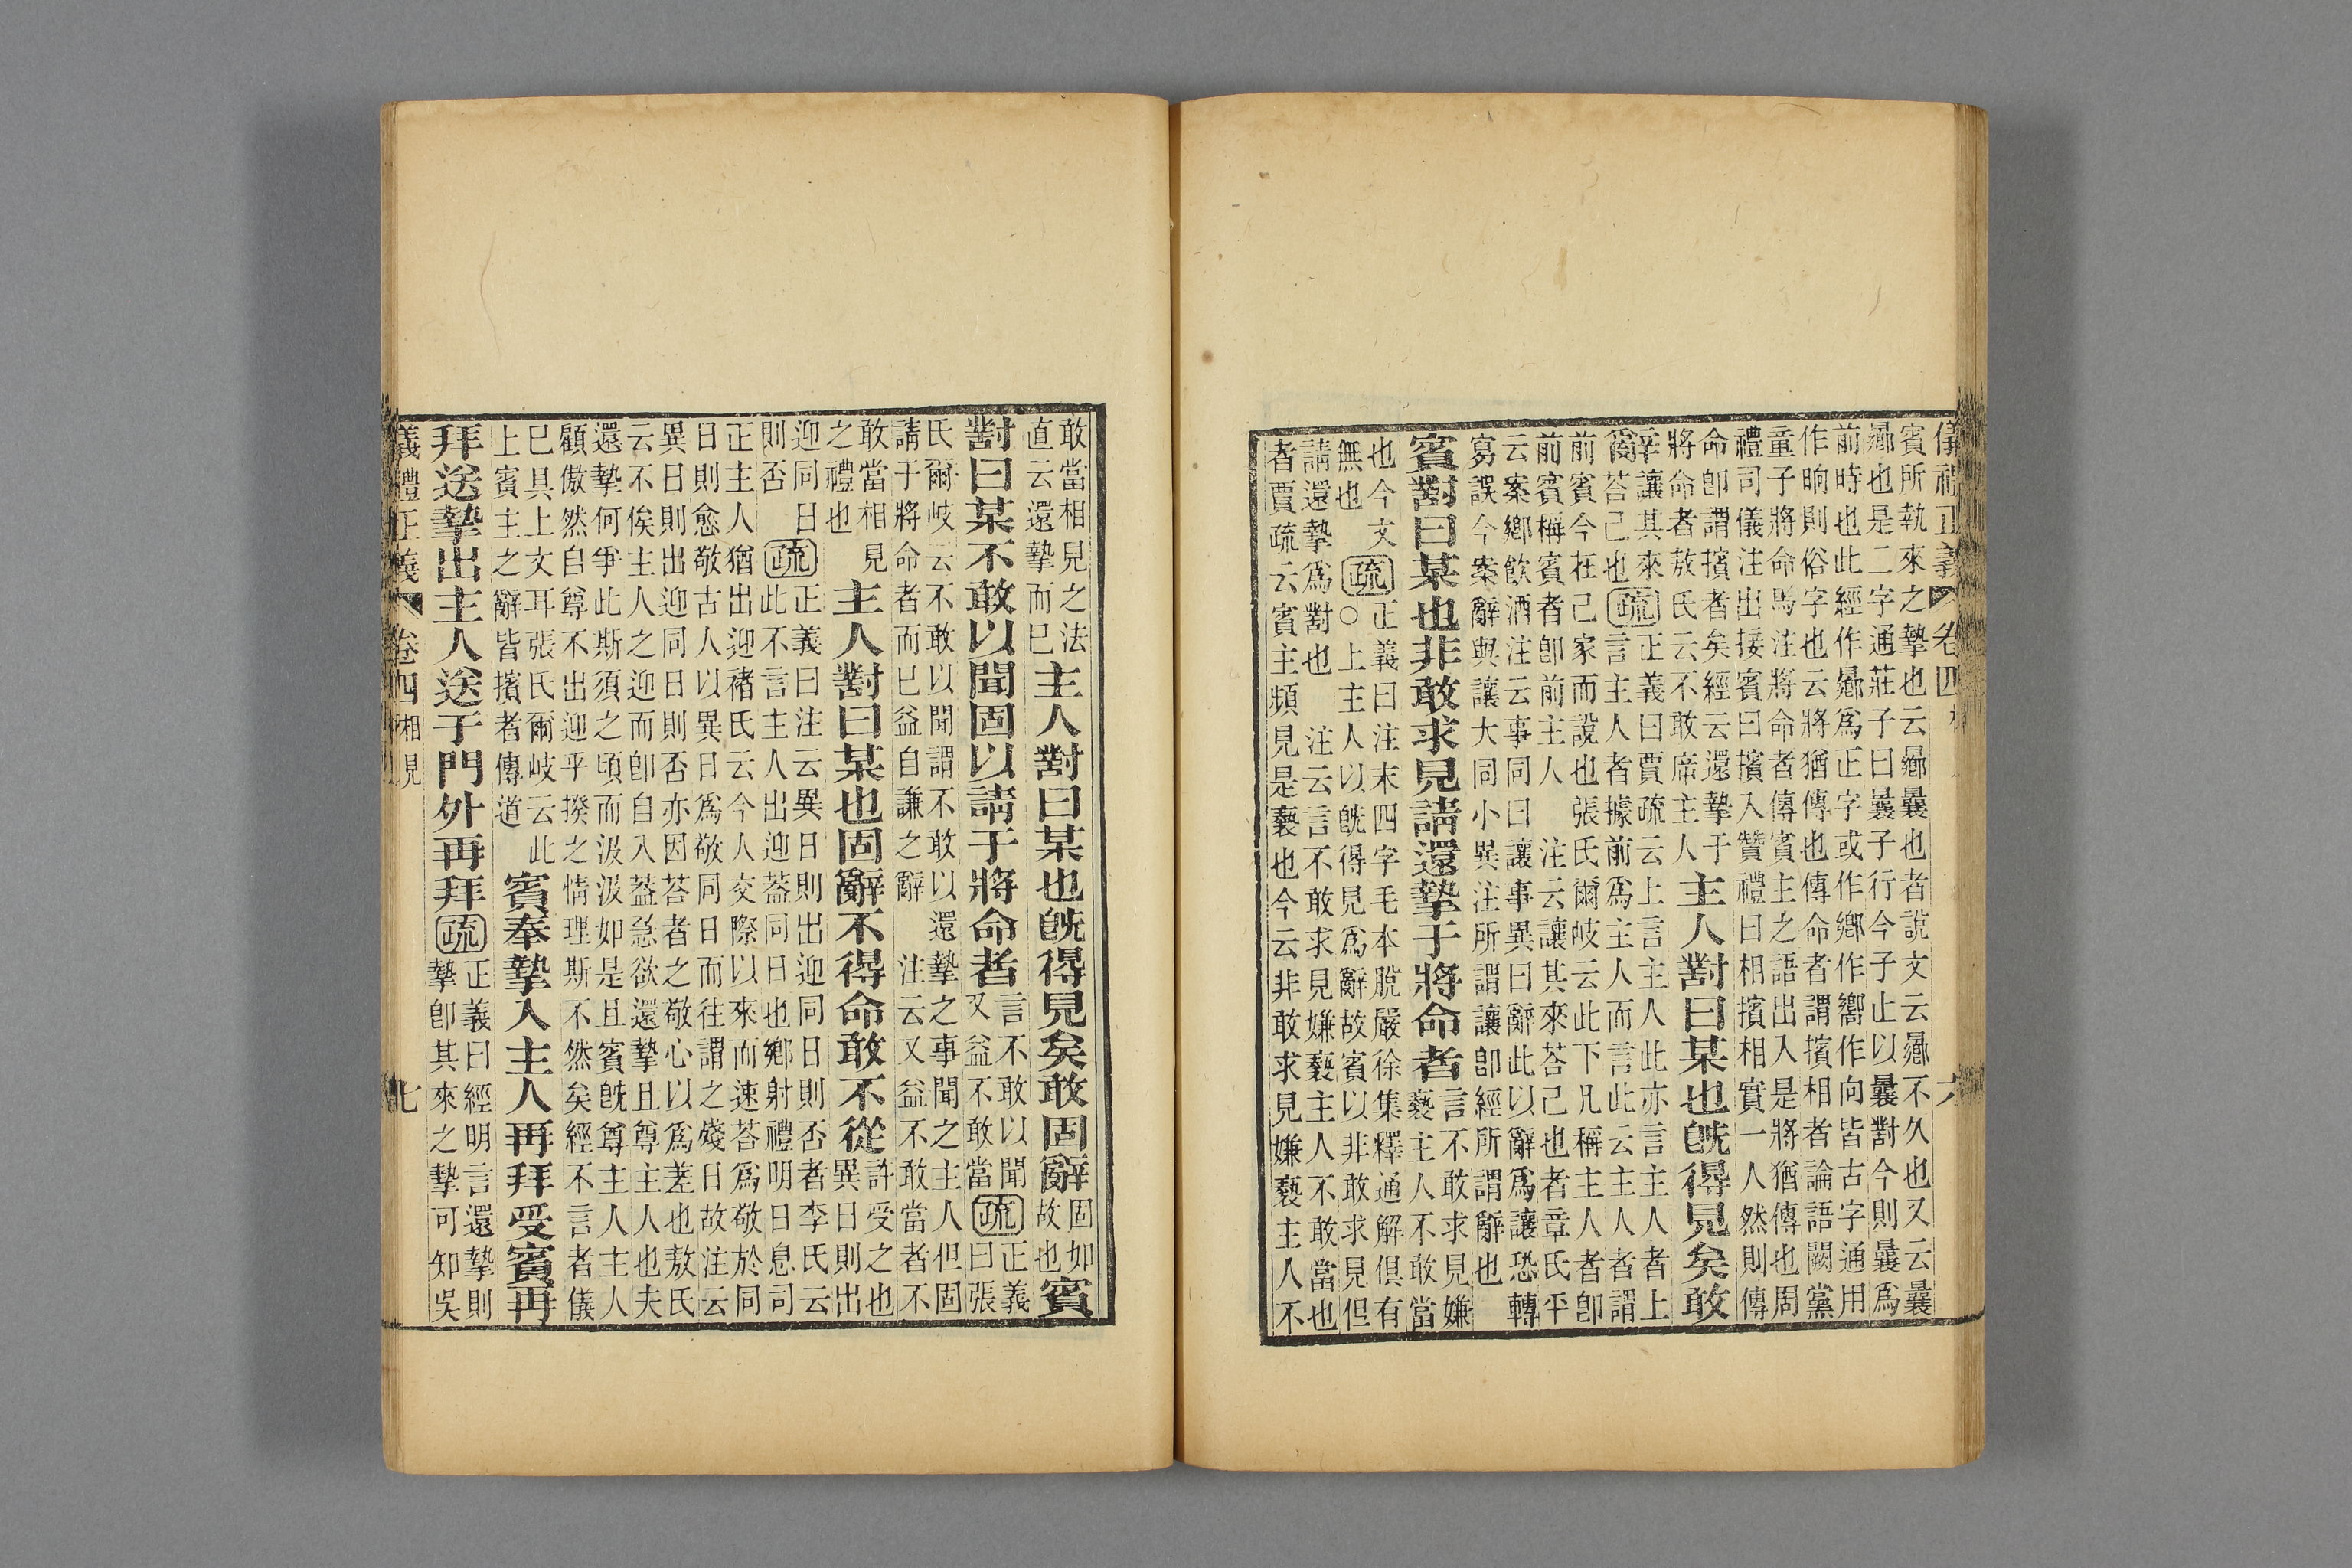 儀禮正義 卷四 六
賓所執來之摯也云曏曩也者說文云曏不久也又云曩
曏也是二字通莊子曰曩子行今子止以曩對今則曩爲
前時也此經作曏爲正字或作鄉作嚮作向皆古字通用
作晌則俗字也云將猶傳也傳命者謂擯相者論語闕黨
童子將命馬注將命者傳賓主之語出入是將猶傳也周
禮司儀注出接賓曰擯入贊禮曰相擯相實一人然則傳
命卽謂擯者矣經云還摯于
將命者敖氏云不敢席主人
主人對曰某也旣得見矣敢
辭
讓其來
荅己也
疏
正義曰賈疏云上言主人此亦言主人者上
言主人者據前爲主人而言此云主人者謂
前賓今在己家而說也張氏爾岐云此下凡稱主人者卽
前賓稱賓者卽前主人 注云讓其來荅己也者章氏平
云案鄉飲酒注云事同曰讓事異曰辭此以辭爲讓恐轉
寫誤今案辭與讓大同小異注所謂讓卽經所謂辭也
賓對曰某也非敢求見請還摯于將命者
言不敢求見嫌
褻主人不敢當
也今文
無也
疏
正義曰注末四字毛本脫嚴徐集釋通解俱有
○上主人以旣得見爲辭故賓以非敢求見但
請還摯爲對也 注云言不敢求見嫌褻主人不敢當也
者賈疏云賓主頻見是褻也今云非敢求見嫌褻主人不
敢當相見之法
直云還摯而已
主人對曰某也旣得見矣敢固辭
固如
故也
賓
對曰某不敢以聞固以請于將命者
言不敢以聞
又益不敢當
疏
正義
曰張
氏爾岐云不敢以聞謂不敢以還摯之事聞之主人但固
請于將命者而已益自謙之辭 注云又益不敢當者不
敢當相見
之禮也
主人對曰某也固辭不得命敢不從
許受之也
異日則出
迎同日
則否
疏
正義曰注云異日則出迎同日則否者李氏云
此不言主人出迎葢同日也鄉射禮明日息司
正主人猶出迎褚氏云今人交際以來而速荅爲敬於同
日則愈敬古人以異日爲敬同日而往謂之殘日故注云
異日則出迎同日則否亦因荅者之敬心以爲差也敖氏
云不俟主人之迎而卽自入葢急欲還摯且尊主人也夫
還摯何爭此斯須之頃而汲汲如是且賓旣尊主人主人
顧傲然自尊不出迎乎揆之情理斯不然矣經不言者儀
已具上文耳張氏爾岐云此
上賓主之辭皆擯者傳道
賓奉摯入主人再拜受賓再
拜送摯出主人送于門外再拜
疏
正義曰經明言還摯則
摯卽其來之摯可知吳
儀禮正義 卷四 相見 七